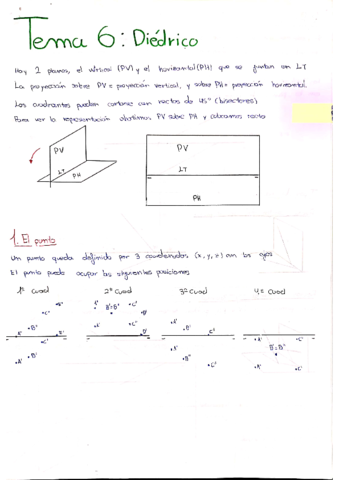 Tema 6: Diédrico
Hay 2 planos, el vertical (PV) y el horizontal (PH) que se juntan en LT
La proyección sobre PV = proyección vertical, y sobre PH = proyección horizontal
Los cuadrantes pueden cortarse con rectas de 45° (bisectores)
Para ver la representación abatimos PV sobre PH y colocamos recto
PV
LT
PH
PV
LT
PH
1. El punto
Un punto queda definido por 3 coordenadas (x, y, z) con los ejes
El punto puede ocupar las siguientes posiciones
1º Cuad 2º Cuad 3º Cuad 4º Cuad